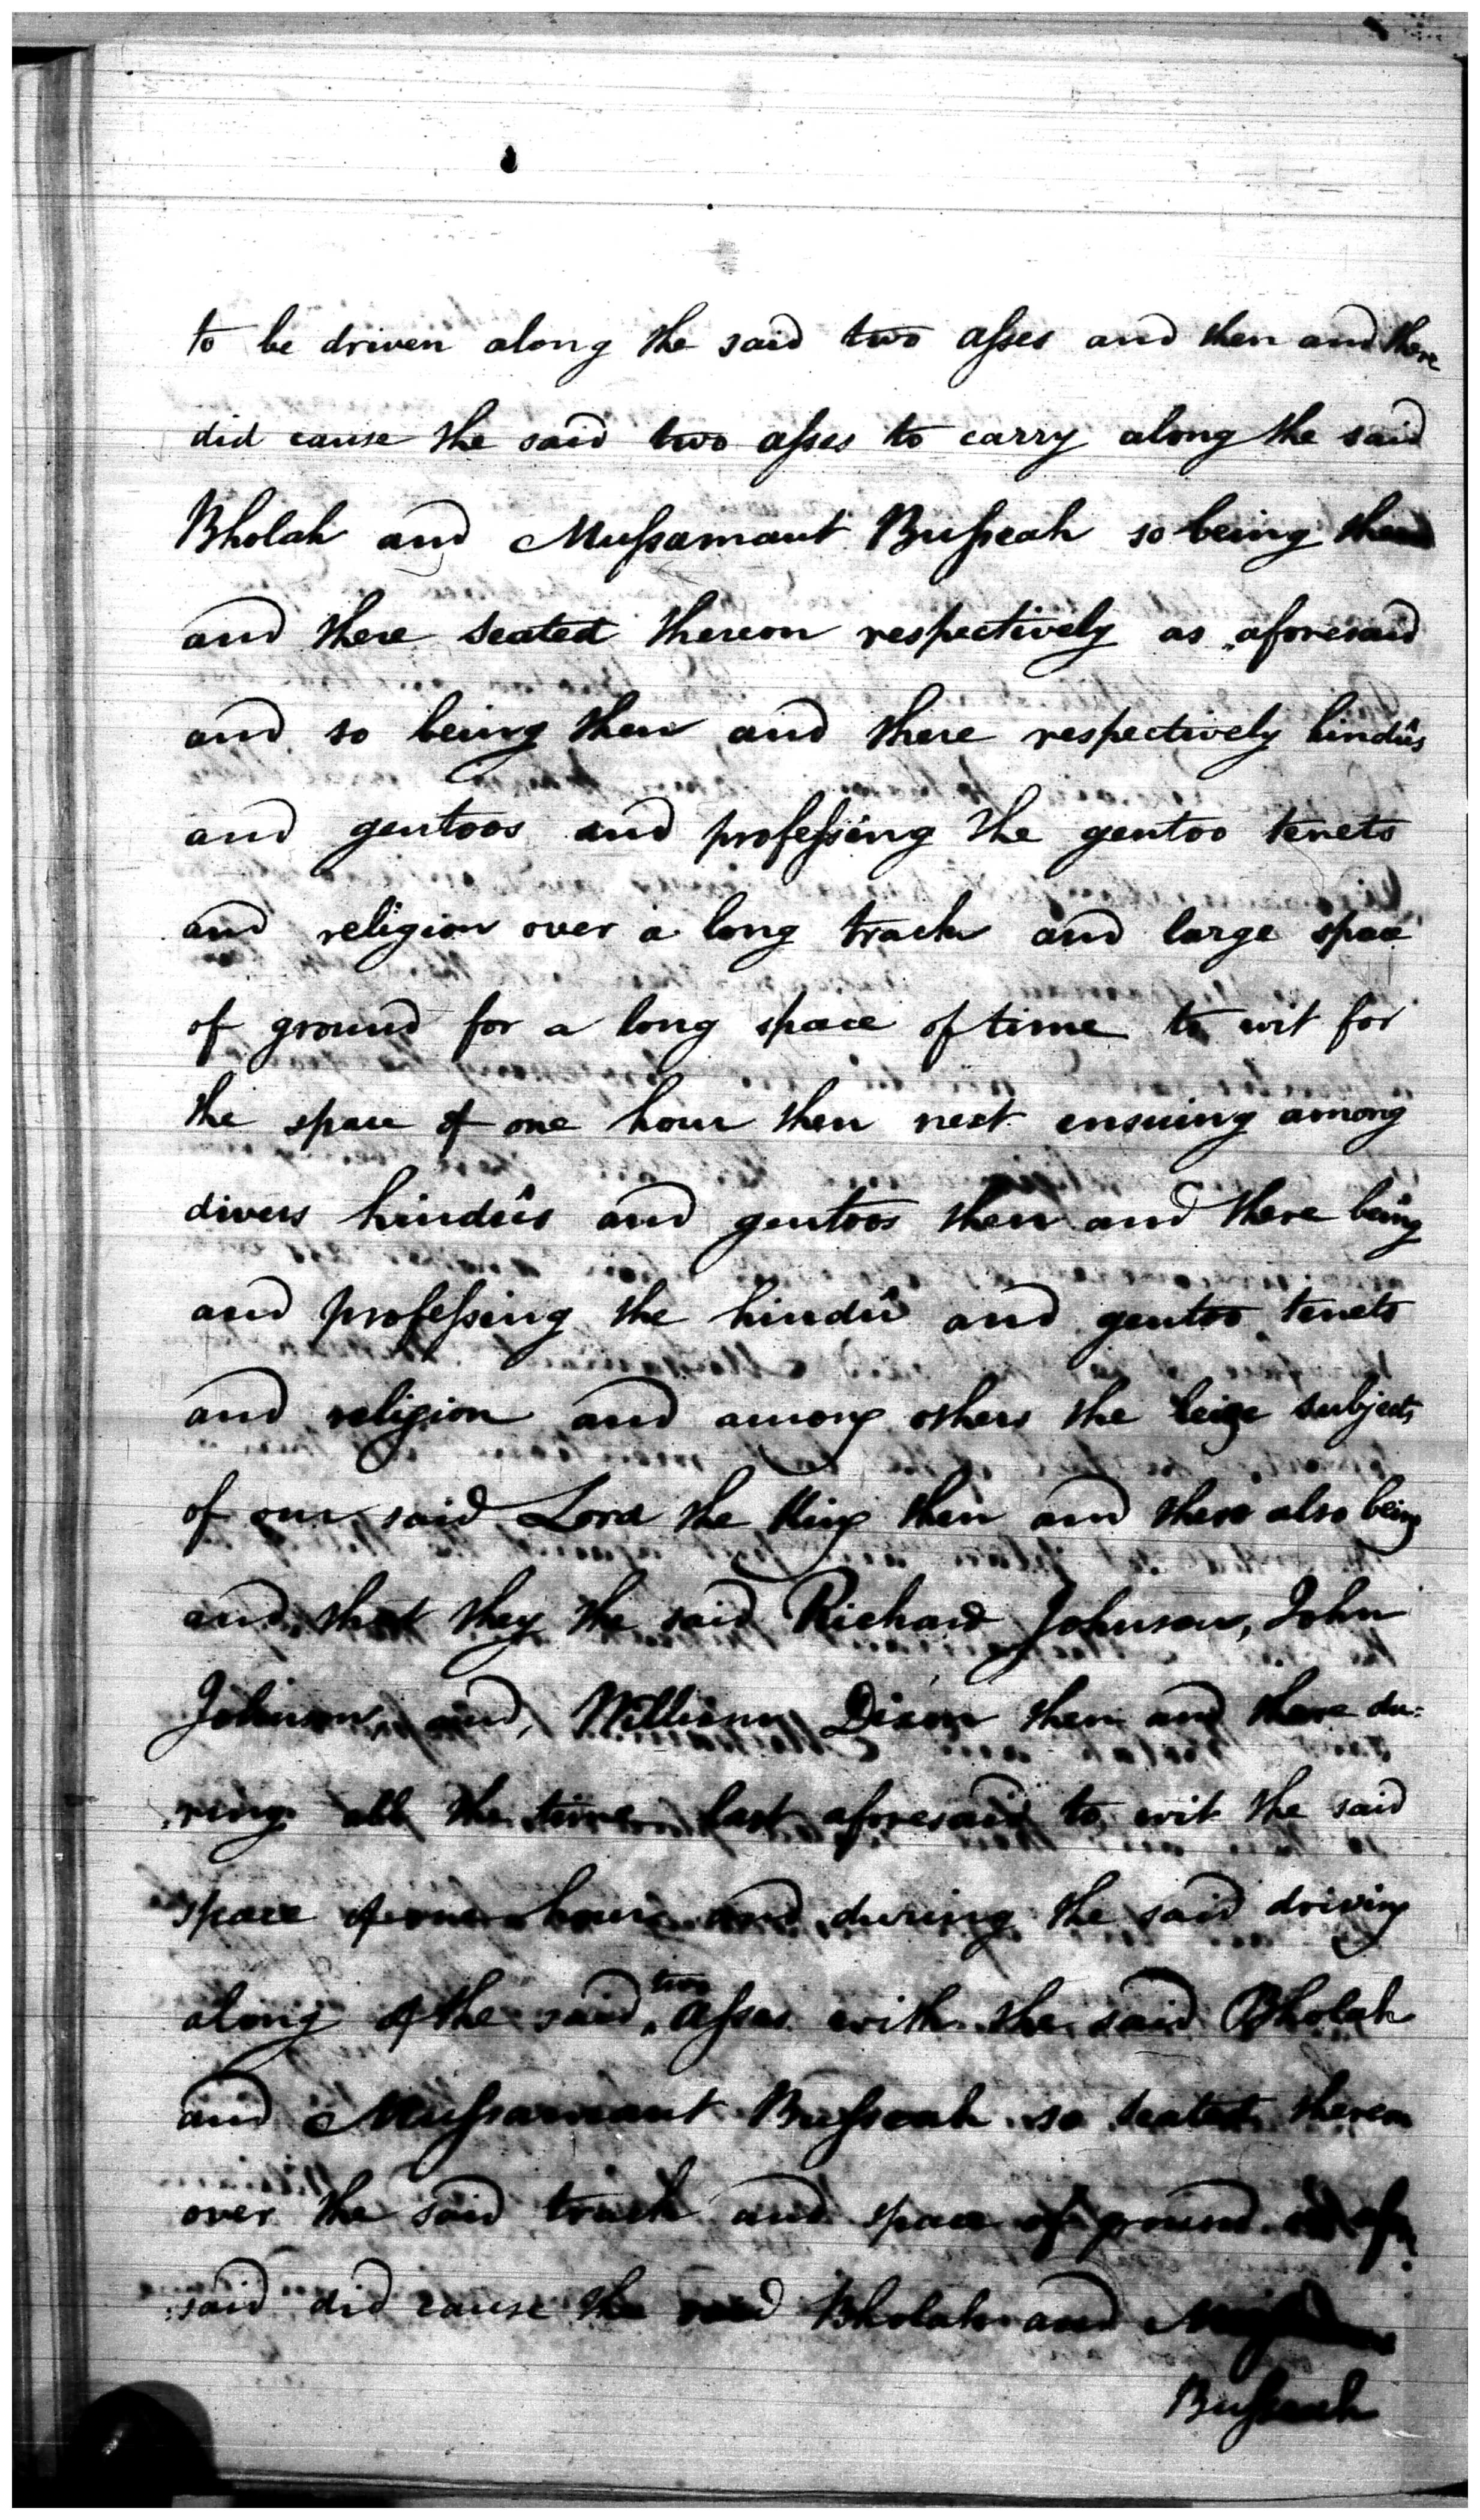 to be driven along the said two aſses and then and there
did cause the said two aſses to carry along the said
Bholah and Muſsamaut Buſseah so being then
and there seated thereon respectively as aforesaid
and so being then and there respectively hindûs
and gentoos and profeſsing the gentoo tenets
and religion over a long track and large space
of ground for a long space of time to wit for
the space of one hour then next ensuing among
divers hindûs and gentoos then and there being
and profeſsing the hindû and gentoo tenets
and religion and among others the leige subjects
of our said Lord the King then and there also being
and that they the said Richard Johnson, John
Johnson, and William Dixon then and there du=
ring all the time last aforesaid to wit the said
space of one hour and during the said driving
along of the said two aſses with the said Bholah
and Muſsamaut Buſseah so seated thereon
over the said track and space of ground as afore
said did cause the said Bholah and
Buſseah